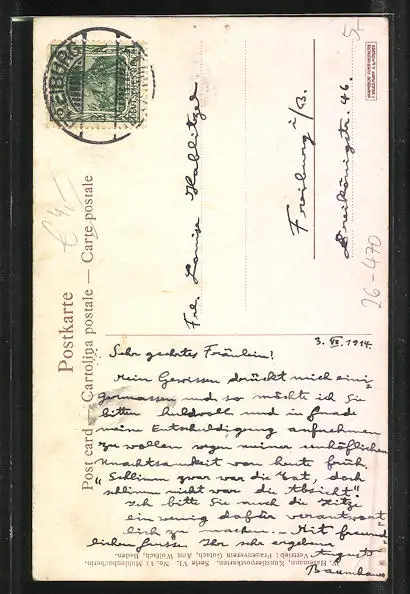 Postkarte
Post card — Cartolina postale — Carte postale
FREIBURG
Frl. Louise Hablitzel
Freiburg i/B.
Dreikönigstr. 46.
26-470
3. VII. 1914.
Sehr geehrtes Fräulein!
Mein Gewissen drückt mich eini-
germassen und so möchte ich Sie
bitten huldvoll und in Gnade
meine Entschuldigung aufnehmen
zu wollen wegen meiner unhöflichen
Unachtsamkeit von heute früh.
„Schlimm zwar war die Tat, doch
schlimm nicht war die Absicht".
Ich bitte Sie auch die Hitze
ein wenig dafür verantwort-
lich zu machen. Mit freund-
lichen Grüssen Ihr sehr ergebener
August
Baumhauer
W. Hasemann, Künstlerpostkarten. Serie VI. No. 11. Mühlenbacherin.
Vertrieb: Frauenverein Gutach, Amt Wolfach, Baden.